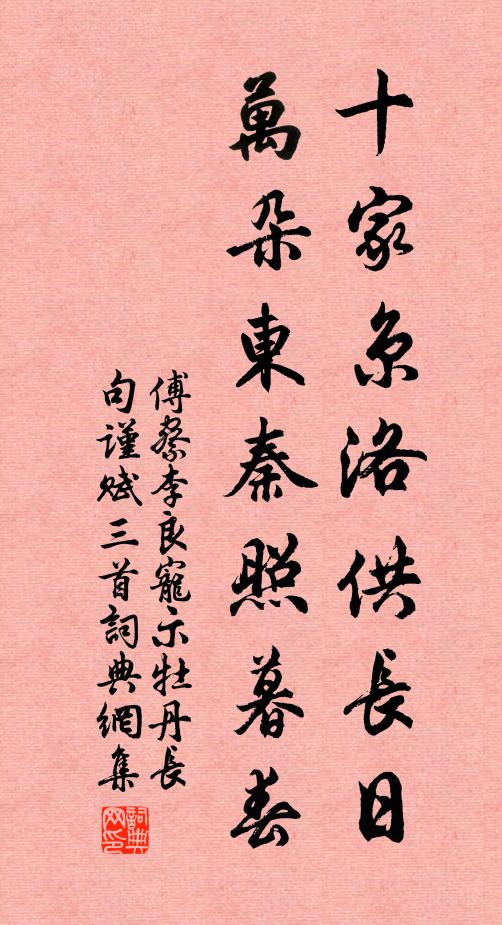 十家京洛供長日
萬朵東秦照暮春
傅察李良寵示牡丹長
句謹賦三首詞典網集
詞典網印